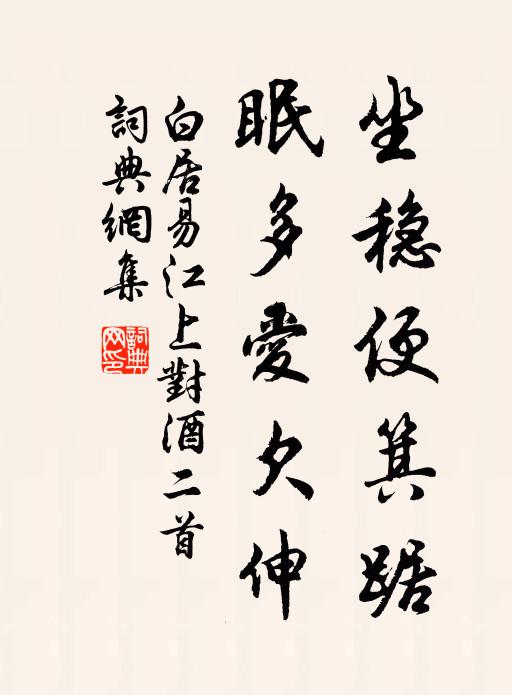 坐穩便箕踞
眠多愛欠伸
白居易江上對酒二首
詞典網集
詞典網印